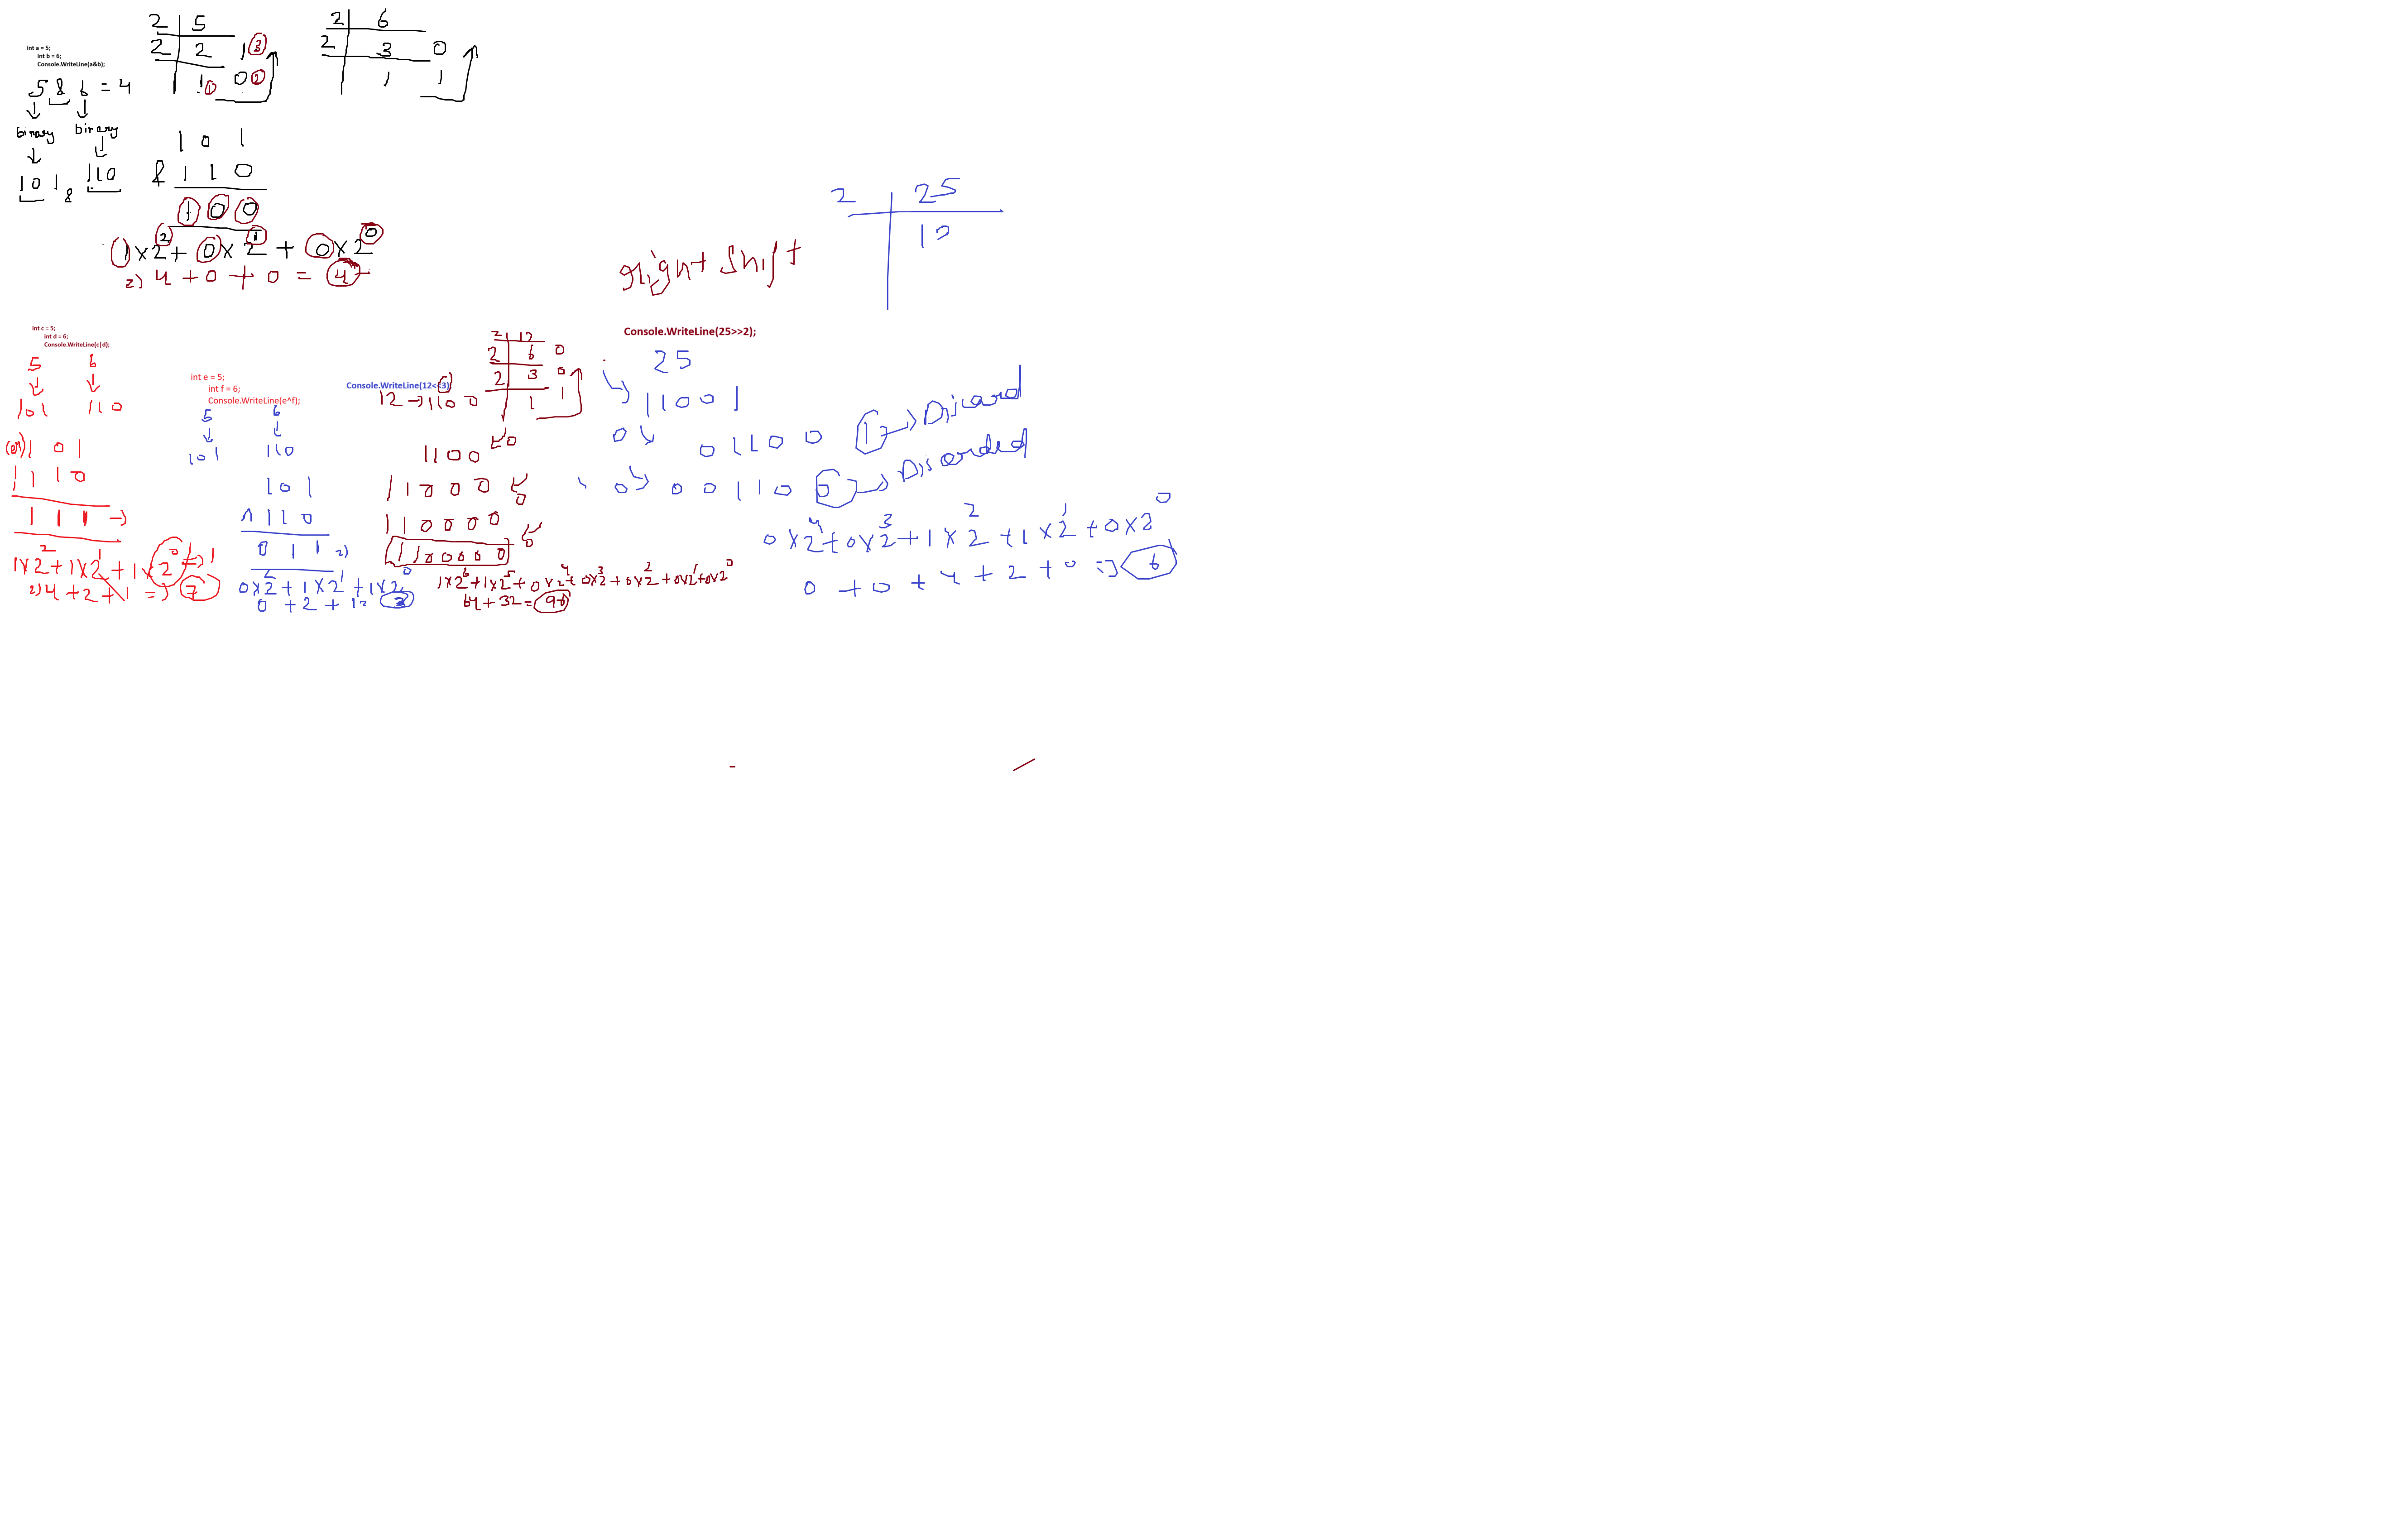 int a = 5;
int b = 6;
Console.WriteLine(a&b);
5 & 6 = 4
binary binary
101 & 110
2 5
2 2 1 3
1 1 0 2
2 6
2 3 0
1 1
1 0 1
& 1 1 0
1 0 0
1x2² + 0x2¹ + 0x2⁰
4 + 0 + 0 = 4
int c = 5;
int d = 6;
Console.WriteLine(c|d);
5 6
101 110
(or) 1 0 1
1 1 0
1 1 1
1x2² + 1x2¹ + 1x2⁰ 1
4 + 2 + 1 => 7
int e = 5;
int f = 6;
Console.WriteLine(e^f);
5 6
101 110
1 0 1
^ 1 1 0
0 1 1
0x2² + 1x2¹ + 1x2⁰
0 + 2 + 1 3
Console.WriteLine(12<<3)
12 → 1100
2 12
2 6 0
2 3 0
1 1
0
1100
11000
0
110000
0
1100000
1x2⁶ + 1x2⁵ + 0x2⁴ + 0x2³ + 0x2² + 0x2¹ + 0x2⁰
64 + 32 = 96
Right Shift
2 25
Console.WriteLine(25>>2);
25
11001
0 01100 1 → Discard
0 00110 0 → Discarded
0x2⁴ + 0x2³ + 1x2² + 1x2¹ + 0x2⁰
0 + 0 + 4 + 2 + 0 => 6